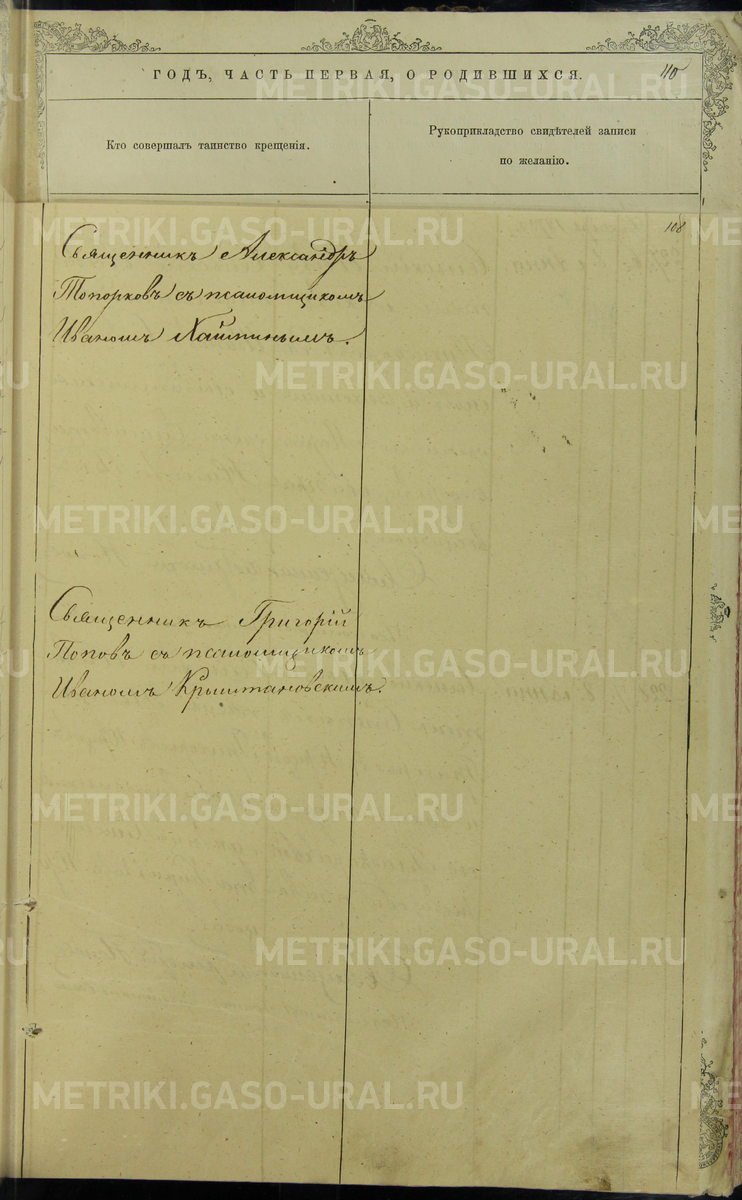 ГОДЪ, ЧАСТЬ ПЕРВАЯ, О РОДИВШИХСЯ.
110
Кто совершалъ таинство крещенія.
Рукоприкладство свидѣтелей записи
по желанію.
108
Священникъ Александръ
Топорковъ съ псаломщикомъ
Иваномъ
Священникъ Григорій
Поповъ съ псаломщикомъ
Иваномъ Крыштановскимъ.
METRIKI.GASO-URAL.RU